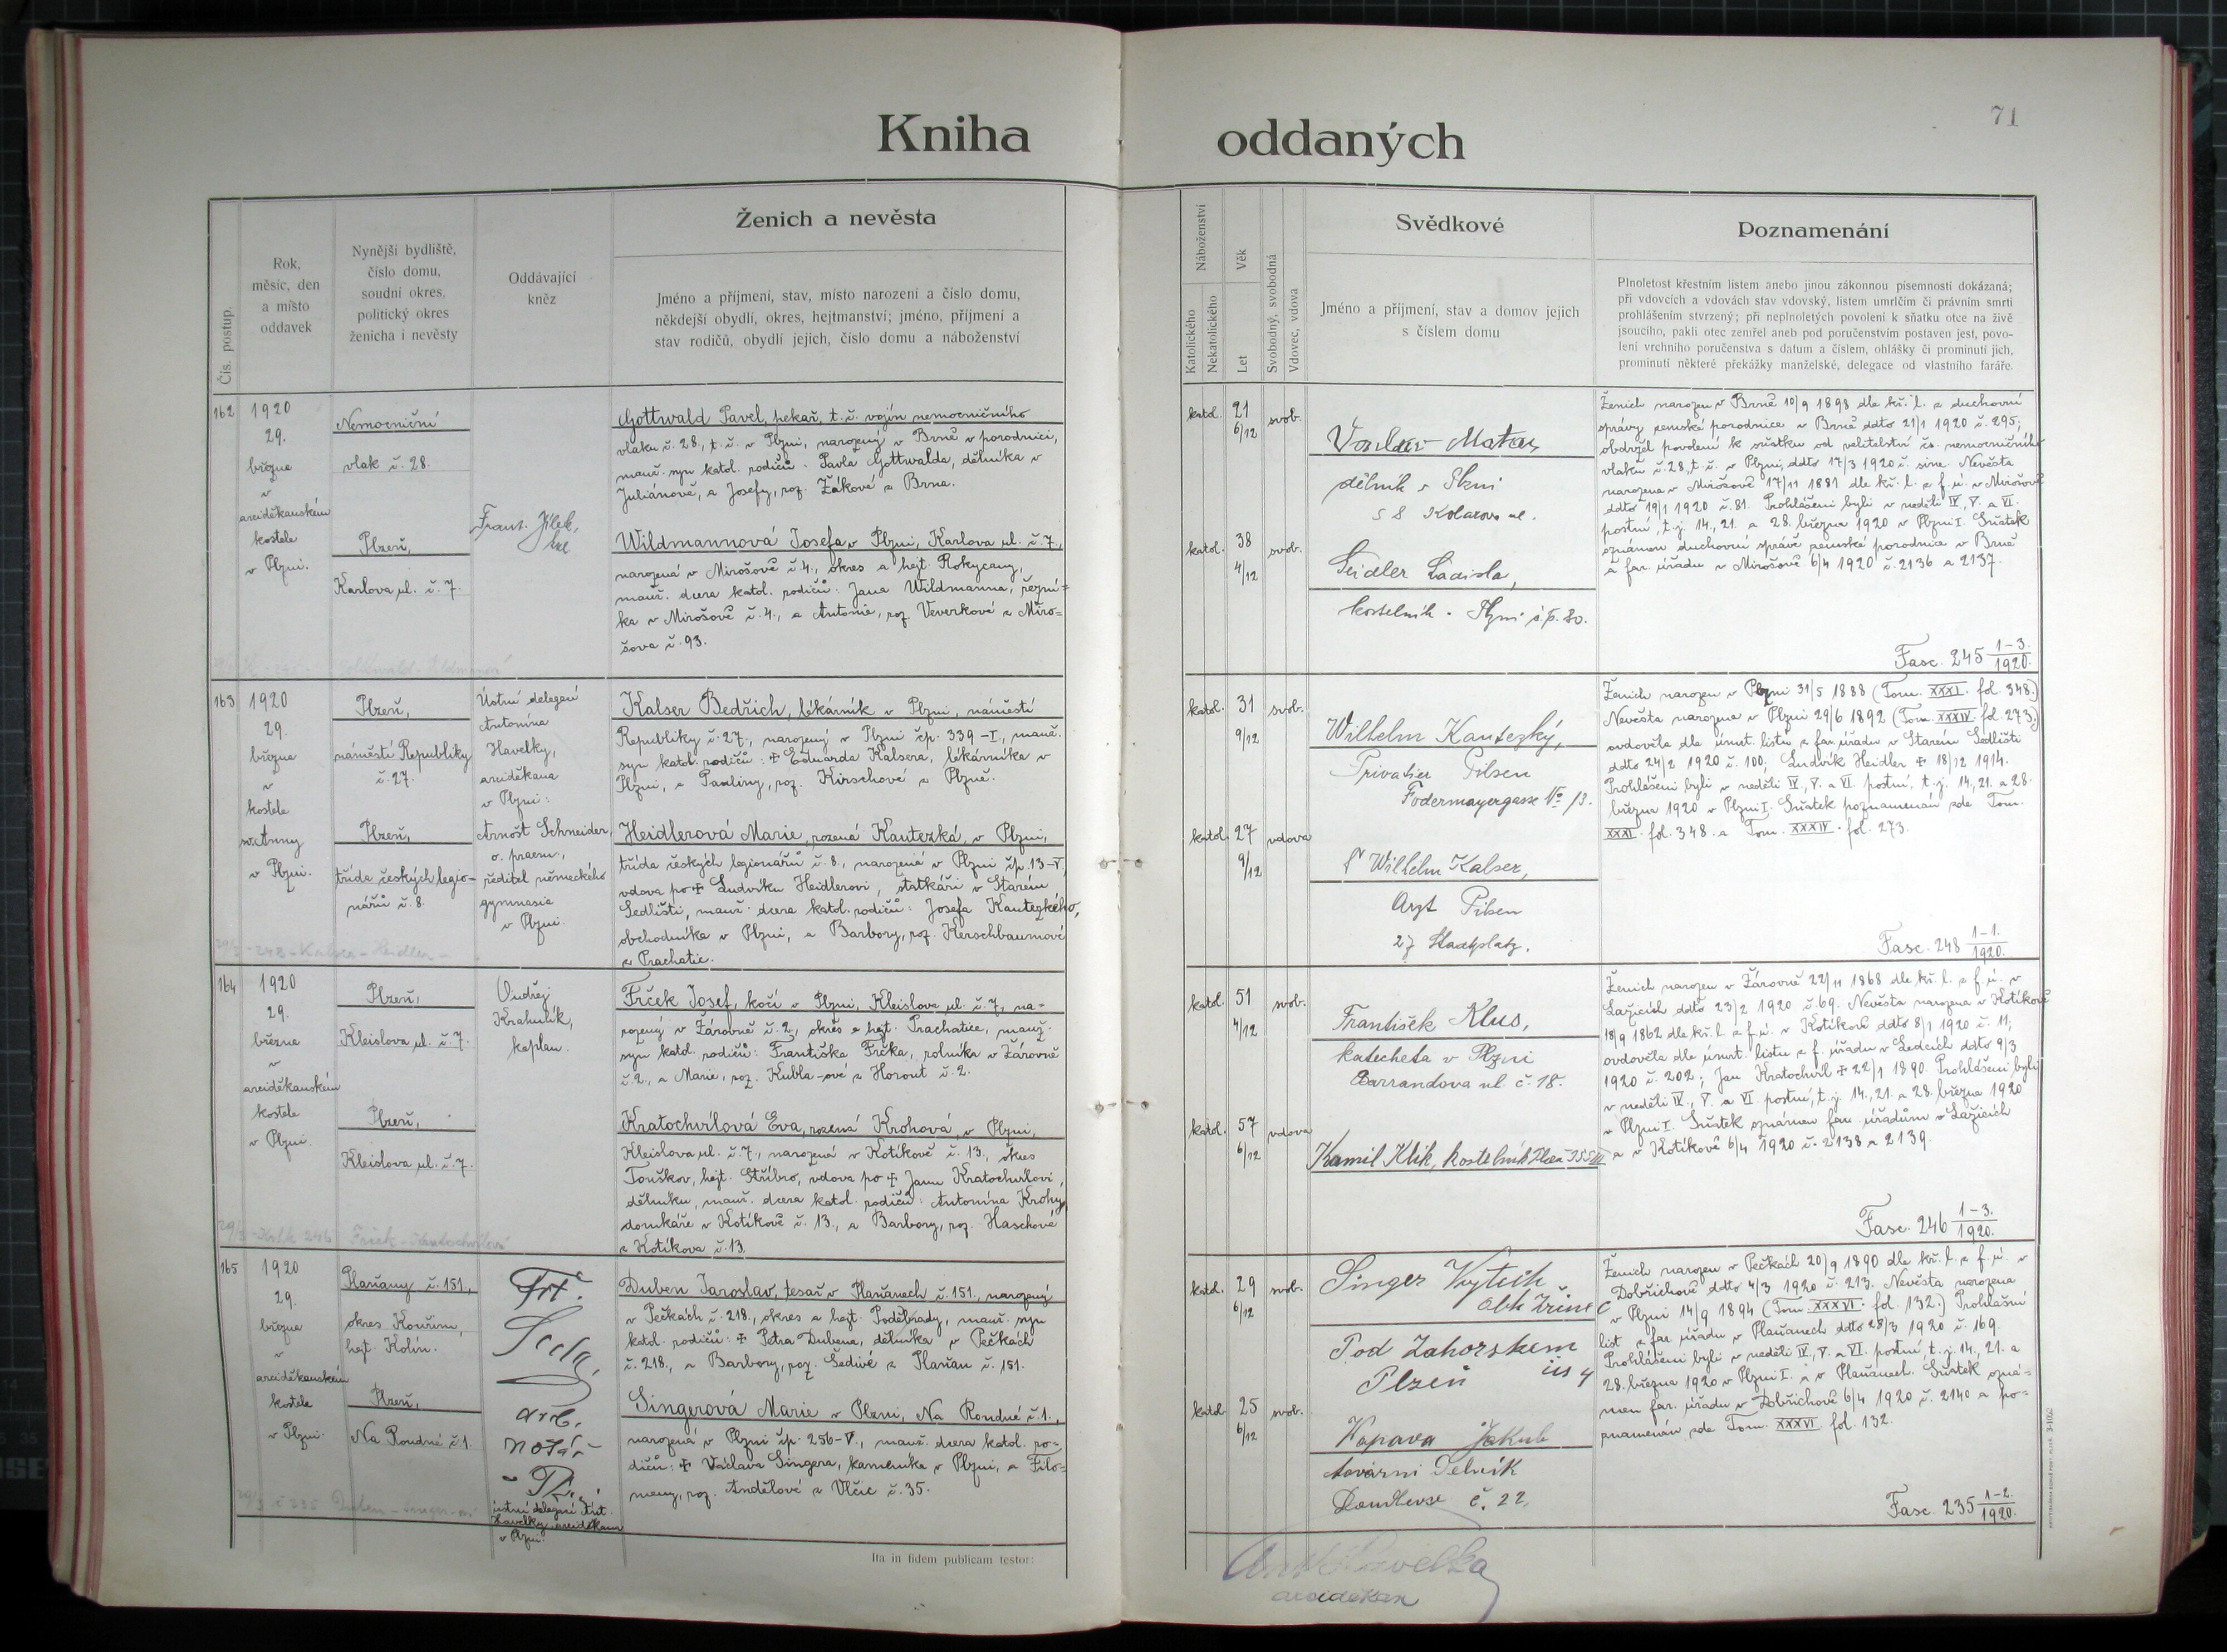 71
Kniha oddaných
Čís. postup.
Rok,
měsíc, den
a místo
oddavek
Nynější bydliště,
číslo domu,
soudní okres,
politický okres
ženicha i nevěsty
Oddávající
kněz
Ženich a nevěsta
Jméno a příjmení, stav, místo narození a číslo domu,
někdejší obydlí, okres, hejtmanství; jméno, příjmení a
stav rodičů, obydlí jejich, číslo domu a náboženství
Náboženství
Katolického
Nekatolického
Věk
Let
Svobodný, svobodná
Vdovec, vdova
Svědkové
Jméno a příjmení, stav a domov jejich
s číslem domu
Poznamenání
Plnoletost křestním listem anebo jinou zákonnou písemností dokázaná;
při vdovcích a vdovách stav vdovský, listem umrlčím či právním smrti
prohlášením stvrzený; při neplnoletých povolení k sňatku otce na živě
jsoucího, pakli otec zemřel aneb pod poručenstvím postaven jest, povo-
lení vrchního poručenstva s datum a číslem, ohlášky či prominutí jich,
prominutí některé překážky manželské, delegace od vlastního faráře.
162
1920
29.
března
v
arciděkanském
kostele
v Plzni.
Nemocniční
vlak č. 28.
Plzeň,
Karlova ul. č. 7.
Frant.
Gottwald Pavel, pekař, t. č. vojín nemocničního
vlaku č. 28, t. č. v Plzni, narozený v Brně v porodnici,
manž. syn katol. rodičů: Pavla Gottwalda, dělníka v
Juliánově, a Josefy, roz. Žákové z Brna.
Wildmannová Josefa v Plzni, Karlova ul. č. 7.,
narozená v Mirošově č. 4., okres a hejt. Rokycany,
manž. dcera katol. rodičů: Jana Wildmanna, řezní-
ka v Mirošově č. 4., a Antonie, roz. Veverkové z Miro-
šova č. 93.
katol. 21 6/12 svob.
katol. 38 4/12 svob.
dělník v Plzni
58 Kolarova ul.
Seidler
kostelník Plzni č. p. 80.
Ženich narozen v Brně 10/9 1898 dle kř. l. z duchovní
správy zemské porodnice v Brně ddto 21/1 1920 č. 295;
obdržel povolení k sňatku od velitelství čs. nemocničního
vlaku č. 28, t. č. v Plzni, ddto 17/3 1920 č. sine. Nevěsta
narozena v Mirošově 17/11 1881 dle kř. l. z f. ú. v Mirošově
ddto 19/1 1920 č. 81. Prohlášeni byli v neděli IV., V. a VI.
postní, t. j. 14., 21. a 28. března 1920 v Plzni I. Sňatek
oznámen duchovní správě zemské porodnice v Brně
a far. úřadu v Mirošově 6/4 1920 č. 2136 a 2137.
Fasc. 245 1-3./1920.
163
1920
29.
března
v
kostele
sv. Anny
v Plzni.
Plzeň,
náměstí Republiky
č. 27.
Plzeň,
třída českých legio-
nářů č. 8.
Ústní delegací
Antonína
Havelky,
arciděkana
v Plzni:
Arnošt Schneider,
o. praem.,
ředitel německého
gymnasia
v Plzni.
Kalser Bedřich, lékárník v Plzni, náměstí
Republiky č. 27., narozený v Plzni čp. 339-I, manž.
syn katol. rodičů: ✝ Eduarda Kalsera, lékárníka v
Plzni, a Pauliny, roz. Kirschové z Plzně.
Heidlerová Marie, rozená Kautezká, v Plzni,
třída českých legionářů č. 8., narozená v Plzni čp. 13-V,
vdova po ✝ Ludvíku Heidlerovi, statkáři v Starém
Sedlišti, manž. dcera katol. rodičů: Josefa Kautezkého,
obchodníka v Plzni, a Barbory, roz. Kerschbaumové
z Prachatic.
katol. 31 9/12 svob.
katol. 27 9/12 vdova
Wilhelm Kautezký,
Privatier Pilsen
Fodermayergasse No 13.
Dr Wilhelm Kalser,
Arzt Pilsen
27 Stadtplatz.
Ženich narozen v Plzni 31/5 1888 (Tom. XXXI. fol. 348.)
Nevěsta narozena v Plzni 29/6 1892 (Tom. XXXIV. fol. 273.)
ovdověla dle úmrt. listu z far. úřadu v Starém Sedlišti
ddto 24/2 1920 č. 100; Ludvík Heidler ✝ 18/12 1914.
Prohlášeni byli v neděli IV., V. a VI. postní, t. j. 14., 21. a 28.
března 1920 v Plzni I. Sňatek poznamenán zde Tom.
XXXI. fol. 348. a Tom. XXXIV. fol. 273.
Fasc. 248 1-1./1920.
164
1920
29.
března
v
arciděkanském
kostele
v Plzni.
Plzeň,
Kleislova ul. č. 7.
Plzeň,
Kleislova ul. č. 7.
Ondřej
Krahulík,
kaplan.
Frček Josef, kočí v Plzni, Kleislova ul. č. 7., na-
rozený v Žárovně č. 2., okres a hejt. Prachatice, manž.
syn katol. rodičů: Františka Frčka, rolníka v Žárovně
č. 2., a Marie, roz. Kubla-ové z Horout č. 2.
Kratochvílová Eva, rozená Krohová, v Plzni,
Kleislova ul. č. 7., narozená v Kotíkově č. 13., okres
Touškov, hejt. Stříbro, vdova po ✝ Janu Kratochvílovi,
dělníku, manž. dcera katol. rodičů: Antonína Krohy,
domkáře v Kotíkově č. 13., a Barbory, roz. Haschové
z Kotíkova č. 13.
katol. 51 4/12 svob.
katol. 57 6/12 vdova
František Klus,
katecheta v Plzni
Barrandova ul. č. 18.
Kamil Klik, kostelník Plzeň 355 III
Ženich narozen v Žárovně 22/11 1868 dle kř. l. z f. ú. v
Lažicích ddto 23/2 1920 č. 69. Nevěsta narozena v Kotíkově
18/9 1862 dle kř. l. z f. ú. v Kotíkově ddto 8/1 1920 č. 11;
ovdověla dle úmrt. listu z f. úřadu v Ledcích ddto 9/3
1920 č. 202; Jan Kratochvíl ✝ 22/1 1890. Prohlášeni byli
v neděli IV., V. a VI. postní, t. j. 14., 21. a 28. března 1920
v Plzni I. Sňatek oznámen far. úřadům v Lažicích
a v Kotíkově 6/4 1920 č. 2138 a 2139.
Fasc. 246 1-3./1920.
165
1920
29.
března
v
arciděkanském
kostele
v Plzni.
Plaňany č. 151.,
okres Kouřim,
hejt. Kolín.
Plzeň,
Na Roudné č. 1.
notář
ústní delegací Ant.
Havelky, arciděkana
v Plzni.
Duben Jaroslav, tesař v Plaňanech č. 151., narozený
v Pečkách č. 218., okres a hejt. Poděbrady, manž. syn
katol. rodičů: ✝ Petra Dubena, dělníka v Pečkách
č. 218., a Barbory, roz. Šedivé z Plaňan č. 151.
Singerová Marie v Plzni, Na Roudné č. 1.,
narozená v Plzni čp. 256-V., manž. dcera katol. ro-
dičů: ✝ Václava Singera, kameníka v Plzni, a Filo-
meny, roz. Andělové z Vlčic č. 35.
katol. 29 6/12 svob.
katol. 25 6/12 svob.
Singer
Pod Zahorskem
Plzeň čis 4
Jakub
tovární
č. 22.
Ženich narozen v Pečkách 20/9 1890 dle kř. l. z f. ú. v
Dobřichově ddto 4/3 1920 č. 213. Nevěsta narozena
v Plzni 14/9 1894 (Tom. XXXVI. fol. 132.) Prohlašní
list z far. úřadu v Plaňanech ddto 28/3 1920 č. 169.
Prohlášeni byli v neděli IV., V. a VI. postní, t. j. 14., 21. a
28. března 1920 v Plzni I. a v Plaňanech. Sňatek ozná-
men far. úřadu v Dobřichově 6/4 1920 č. 2140 a po-
znamenán zde Tom. XXXVI. fol. 132.
Fasc. 235 1-2./1920.
Ita in fidem publicam testor:
Ant. Havelka
arciděkan